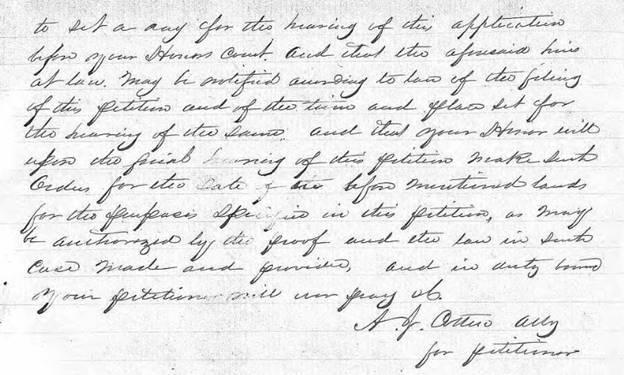 to set a day for the hearing of this application
before your Honors Court. And that the aforesaid heirs
at law. May be notified according to law of the filing
of this Petition and of the time and place set for
the hearing of the same. and that your Honor will
upon the final hearing of this Petition make such
Orders for the Sale of the before mentioned lands
for the purposes specified in this Petition, as may
be authorized by the proof and the law in such
Case made and provided, and in duty bound
your petitioner will ever pray &c.
A. J. Atty
for petitioner